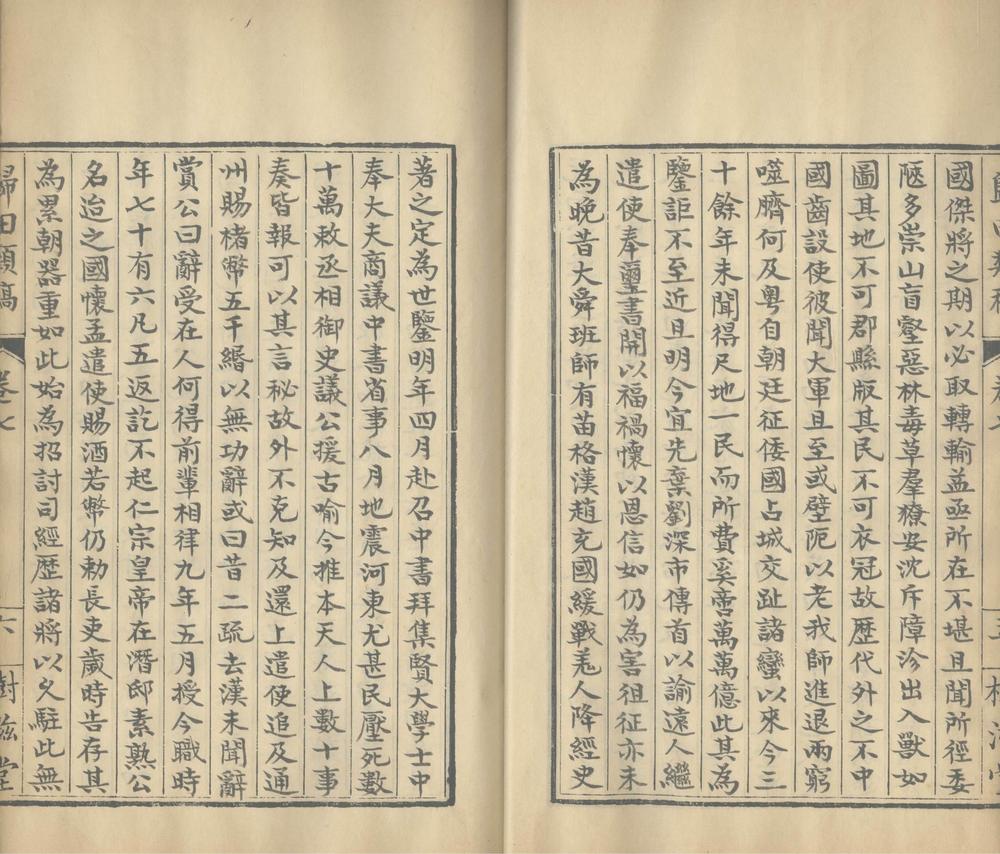 國傑將之期以必取轉輸益亟所在不堪且聞所徑委
陿多崇山盲壑惡林毒草羣獠安沈斥障沴出入獸如
圖其地不可郡縣版其民不可衣冠故歷代外之不中
國齒設使彼聞大軍且至或壁阨以老我師進退兩窮
噬臍何及粤自朝廷征倭國占城交趾諸蠻以來今三
十餘年未聞得尺地一民而所費奚啻萬萬億此其為
鑒詎不至近且明今宜先棄劉深市傳首以諭遠人繼
遣使奉璽書開以福禍懷以恩信如仍為害徂征亦未
為晚昔大舜班師有苗格漢趙充國緩戰羗人降經史
著之定為世鑒明年四月赴召中書拜集賢大學士中
奉大夫商議中書省事八月地震河東尤甚民壓死數
十萬敕丞相御史議公援古喻今推本天人上數十事
奏皆報可以其言秘故外不克知及還上遣使追及通
州賜楮幣五千緡以無功辭或曰昔二疏去漢未聞辭
賞公曰辭受在人何得前輩相律九年五月授今職時
年七十有六凡五返訖不起仁宗皇帝在潛邸素熟公
名迨之國懷孟遣使賜酒若幣仍勅長吏歲時告存其
為累朝器重如此始為招討司經歴諸將以久駐此無
歸田類稿 卷七 六 對滋堂